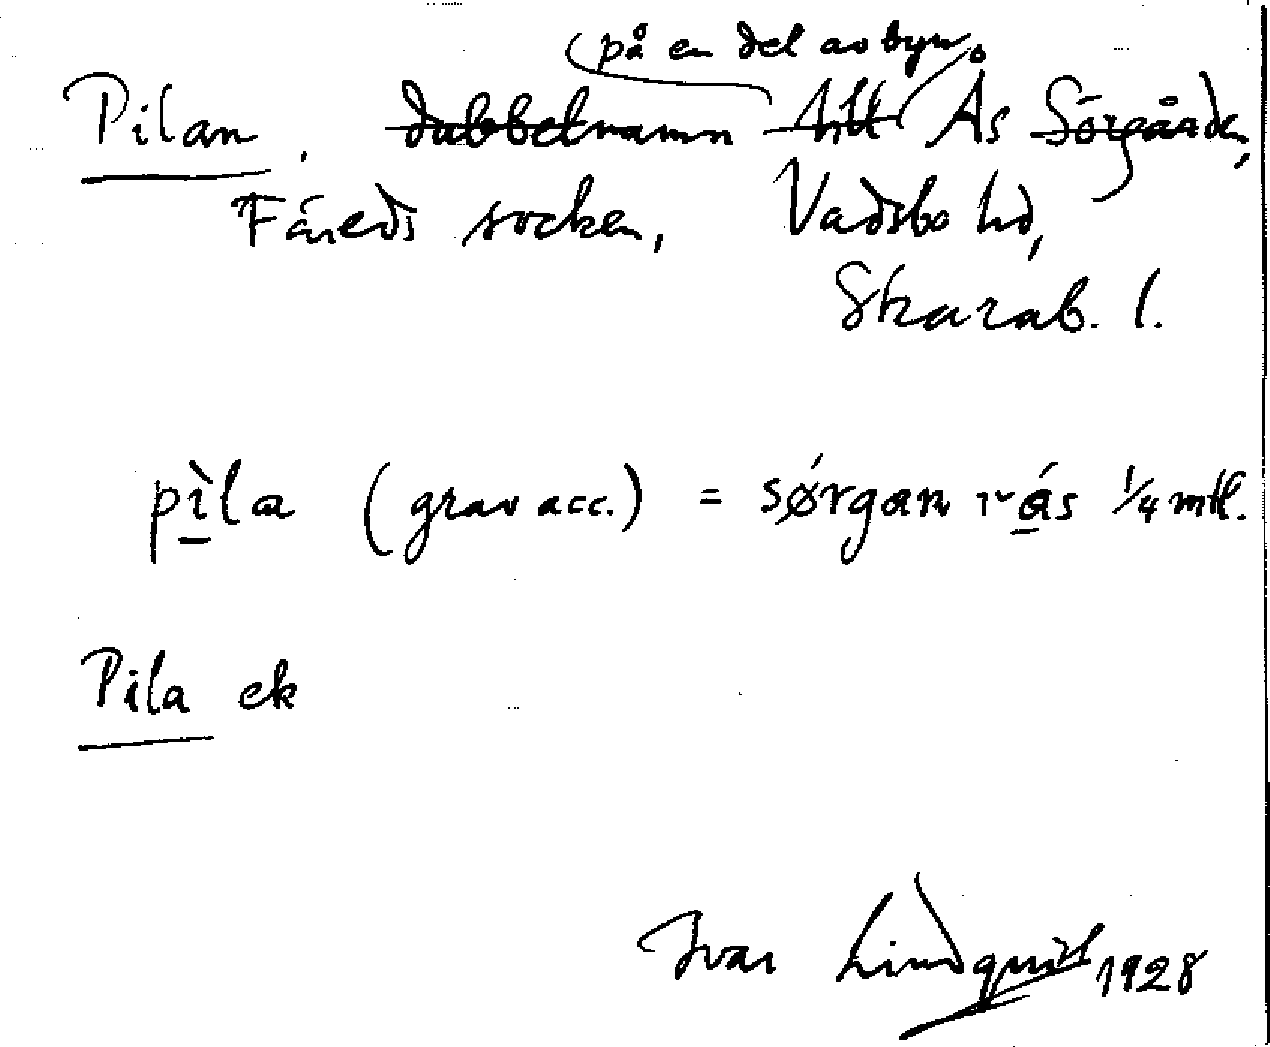 på en del av byn
Pilan, dubbelnamn till Ås Sörgården,
Fåreds socken, Vadsbo hd,
Skarab. l.
pìla (grav acc.) = sǿrgan i ás 1/4 mtl.
Pila ek
Ivar Lindquist 1928